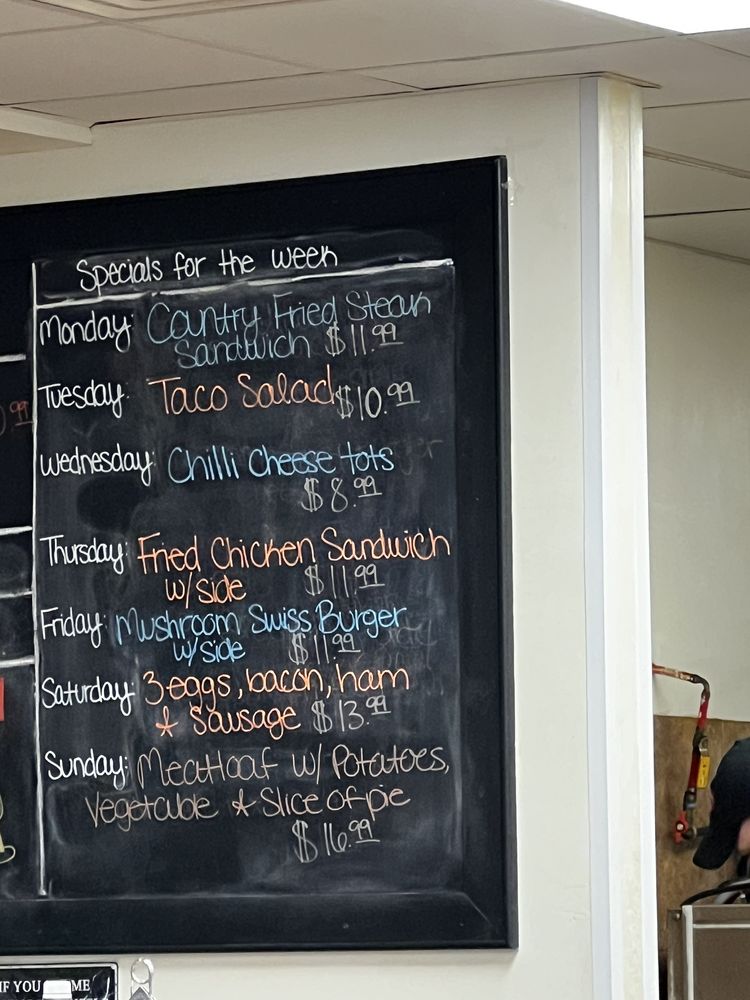 Specials for the week
Monday: Country Fried Steak
Sandwich $11.99
Tuesday: Taco Salad $10.99
Wednesday: Chilli Cheese tots
$8.99
Thursday: Fried Chicken Sandwich
w/side $11.99
Friday: Mushroom Swiss Burger
w/side $11.99
Saturday: 3 eggs, bacon, ham
& Sausage $13.99
Sunday: Meatloaf w/ Potatoes,
Vegetable & Slice of pie
$16.99
IF YOU ME